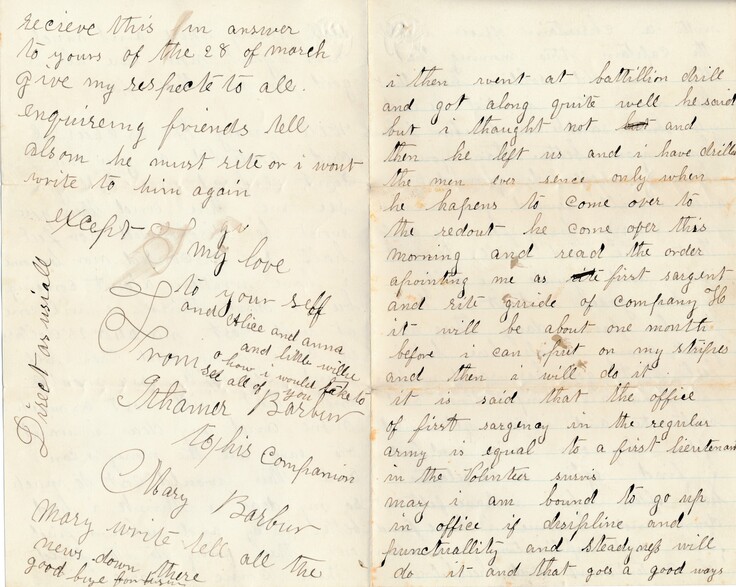 recieve this in answer
to yours of the 28 of march
give my respects to all
enquireing friends tell
alsom he must rite or i wont
write to him again
except
my love
to your self
and Alice and anna
and little willie
o how i would like to
see all of you
From
Ithamer Barbur
to his Companion
Mary Barbur
Mary write tell all the
news down there
good buye from
Direct as usiall
i then went at battillion drill
and got along quite well he said
but i thought not and
then he left us and i have drilled
the men ever sence only when
he hapens to come over to
the redout he come over this
morning and read the order
apointing me as first sargent
and rite guide of Company H
it will be about one month
before i can put on my stripes
and then i will do it
it is said that the office
of first sargency in the regular
army is equal to a first lieutenan
in the Volenteer survis
mary i am bound to go up
in office if disipline and
punctuallity and steadyness will
do it and that goes a good ways